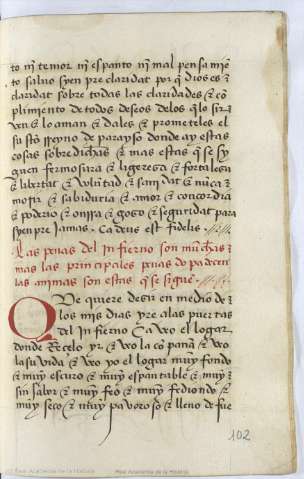 to nj temor nj espanto nj mal pensamiẽ
to saluo syenpre claridat por q̃ dios es ⁊
claridat sobre todas las claridades ⁊ cõ
plimiento de todos deseos delos q̃lo sir
uen ⁊ lo aman ⁊ dales ⁊ prometeles el
su sto rreyno de parayso donde ay estas
cosas sobredichas ⁊ mas estas q̃ se sy
guen fermosura ⁊ ligereza ⁊ fortaleza
⁊ libertat ⁊ voluntad ⁊ sanidat ⁊ nũca
morir ⁊ sabiduria ⁊ amor ⁊ concordia
⁊ poderio ⁊ onrra ⁊ gozo ⁊ seguridat para
syenpre jamas. Ca deus est fidelis
Las penas del infierno son muchas ⁊
mas las prinçipales penas q̃ padeçen
las animas son estas q̃ se sigue
Que quiere dezir en medio de
los mis dias yre alas puertas
del infierno Ca veo el logar
donde reçelo yr ⁊ veo la cõpana ⁊ veo
la su vida ⁊ veo yo el logar muy fondo
⁊ muy escuro ⁊ muy espantable ⁊ muy
sin sabor ⁊ muy feo ⁊ muy fediondo ⁊
muy seco ⁊ muy pavoroso ⁊ lleno de fue
102
Real Academia de la Historia